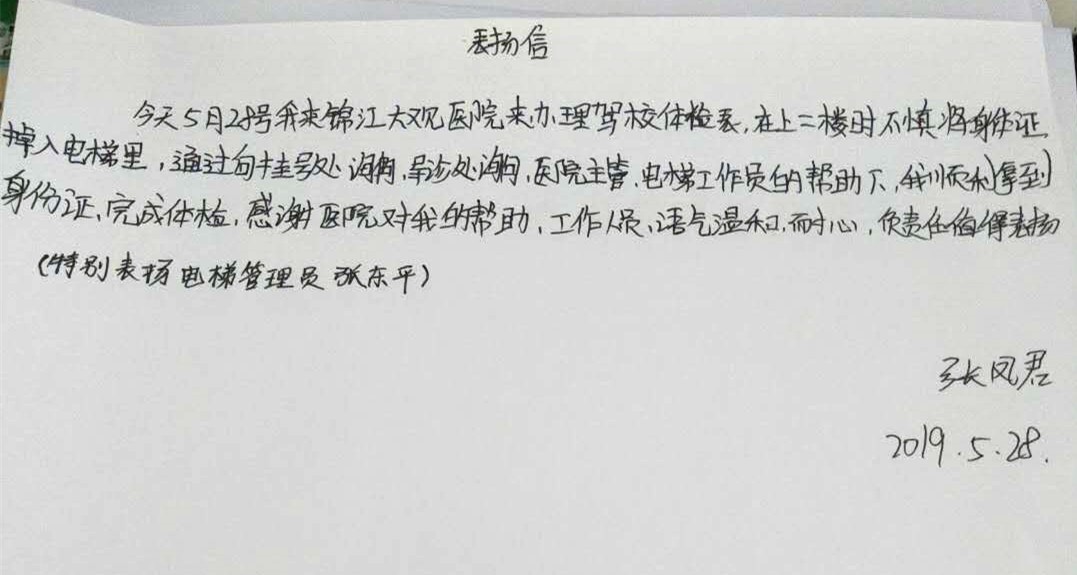 表扬信
今天5月28号我来锦江大观医院来办理驾校体检表,在上二楼时不慎将身份证
掉入电梯里,通过向挂号处询问,导诊处询问,医院主管、电梯工作员的帮助下,我顺利拿到
身份证,完成体检,感谢医院对我的帮助,工作人员,语气温和,耐心,负责任值得表扬
(特别表扬电梯管理员 张东平)
张凤君
2019.5.28.